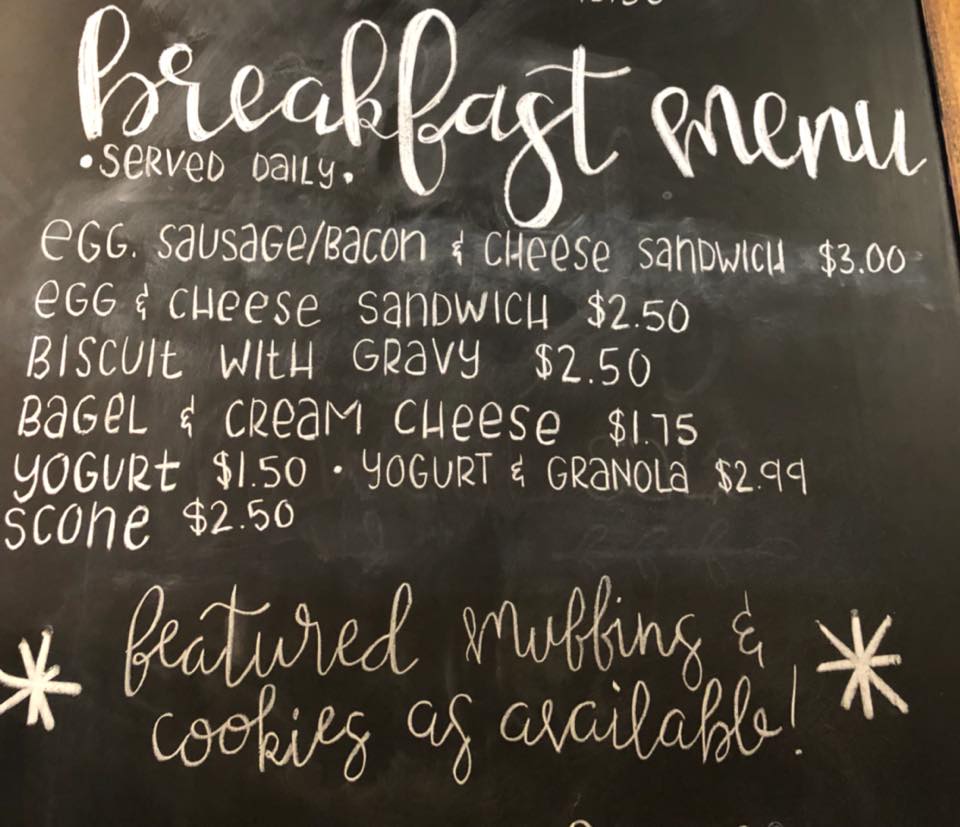 breakfast menu
• SERVED DAILY.
EGG. SAUSAGE/BACON & CHEESE SANDWICH $3.00
EGG & CHEESE SANDWICH $2.50
BISCUIT WITH GRAVY $2.50
BAGEL & CREAM CHEESE $1.75
YOGURT $1.50 • YOGURT & GRANOLA $2.99
SCONE $2.50
featured muffins &
cookies as available!